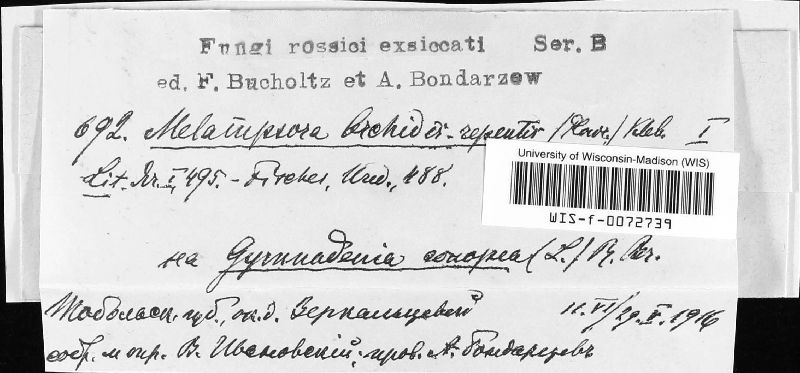 Fungi rossici exsiccati Ser. B
ed. F. Bucholtz et A. Bondarzew
692. Melampsora Orchidi-repentis /Plowr./ Kleb. I
Lit. Kr. I, 495. - Fischer, Ured., 488.
University of Wisconsin-Madison (WIS)
WIS-f-0072739
на Gymnadenia conopea (L.) R. Br.
Тобольск. губ., ок. д. Зеркальцевой 11.VI/29.V.1916
собр. и опр. В. Ивановский; пров. А. Бондарцевъ